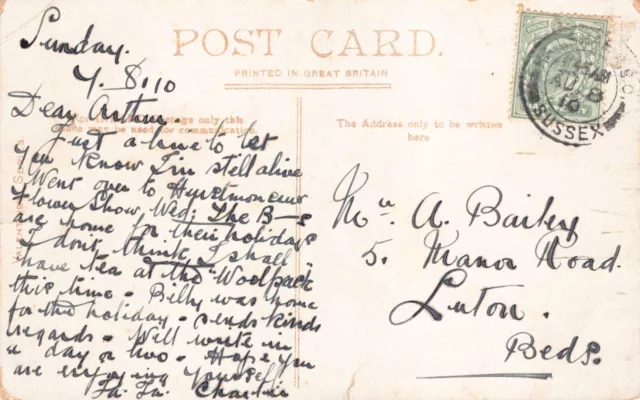 POST CARD.
PRINTED IN GREAT BRITAIN
Sunday.
7. 8. 10
Dear Arthur.
Just a line to let
you know I'm still alive
Went over to Hurstmonceux
Flower Show, Wed: The B—s
are home for their holidays
I don't think I shall
have tea at the "Woolpack"
this time. Billy was home
for the holiday. sends kinds
regards. Will write in
a day or two. Hope you
are enjoying yourself
Ta. Ta. Charlie
only this
may be used for communication.
The Address only to be written
here
Mr A. Bailey
5. Manor Road.
Luton.
Beds.
AU 8
10
SUSSEX